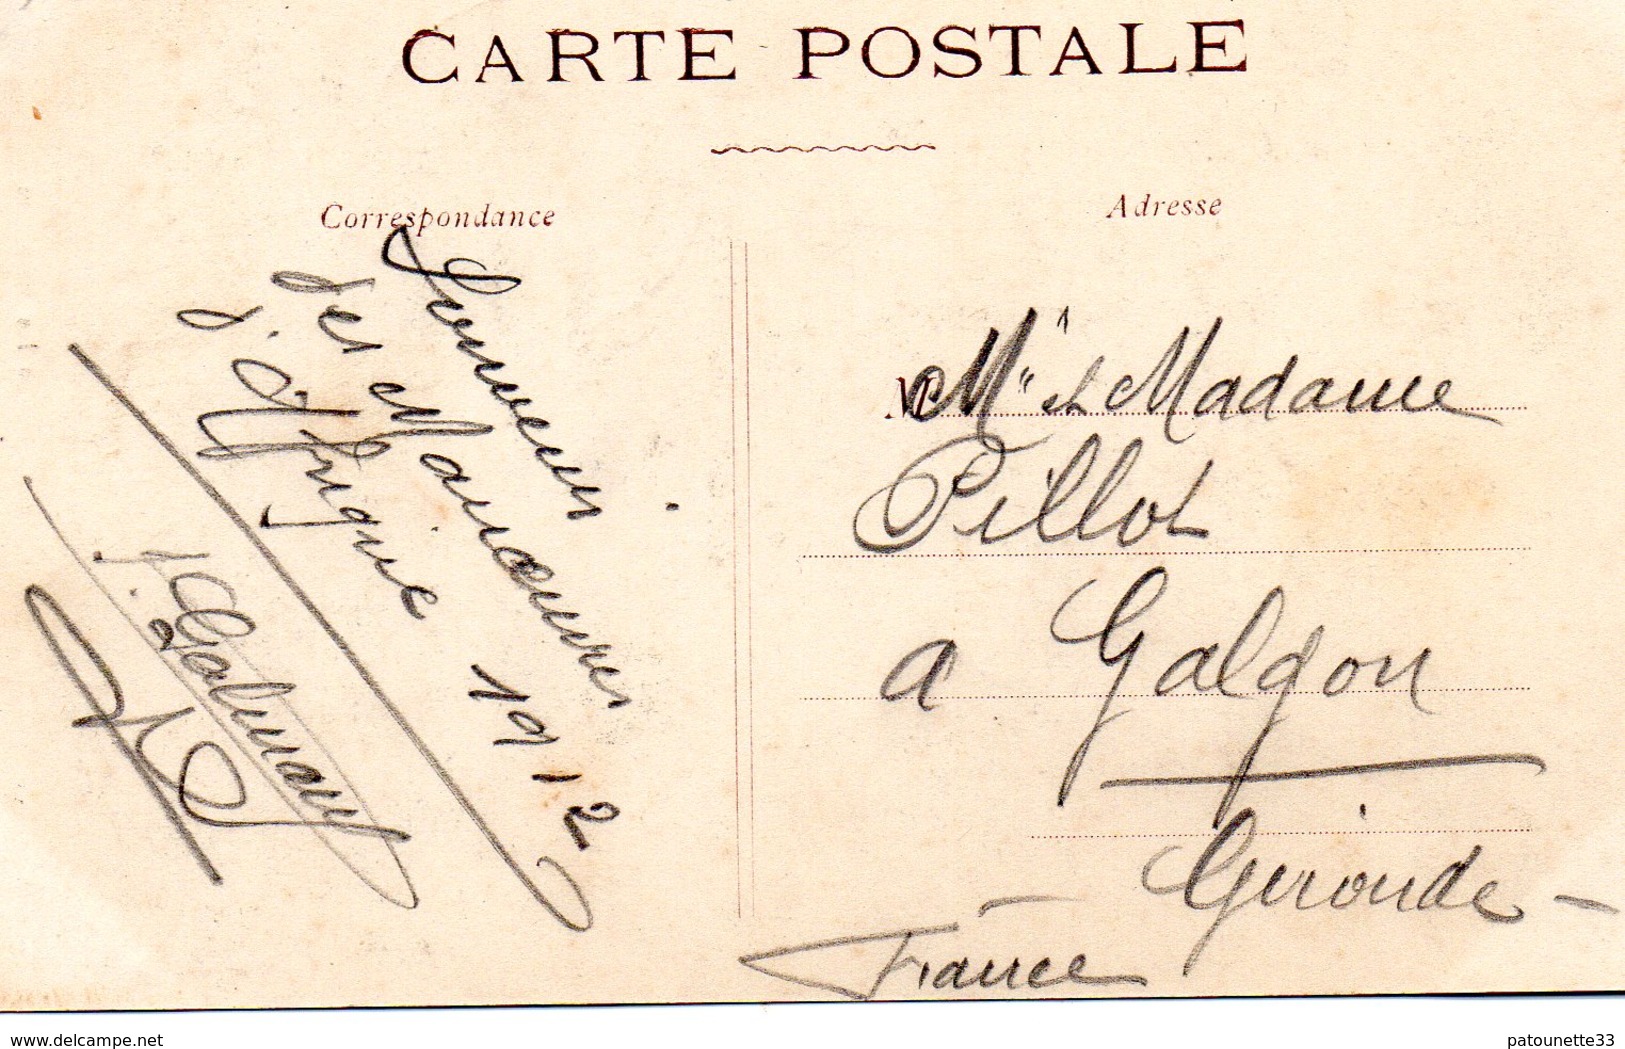 CARTE POSTALE
Correspondance
Souvenir
des Manœuvres
d'Afrique 1912
Adresse
Mr et Madame
Pillot
a Galgon
Gironde
France
www.delcampe.net
patounette33